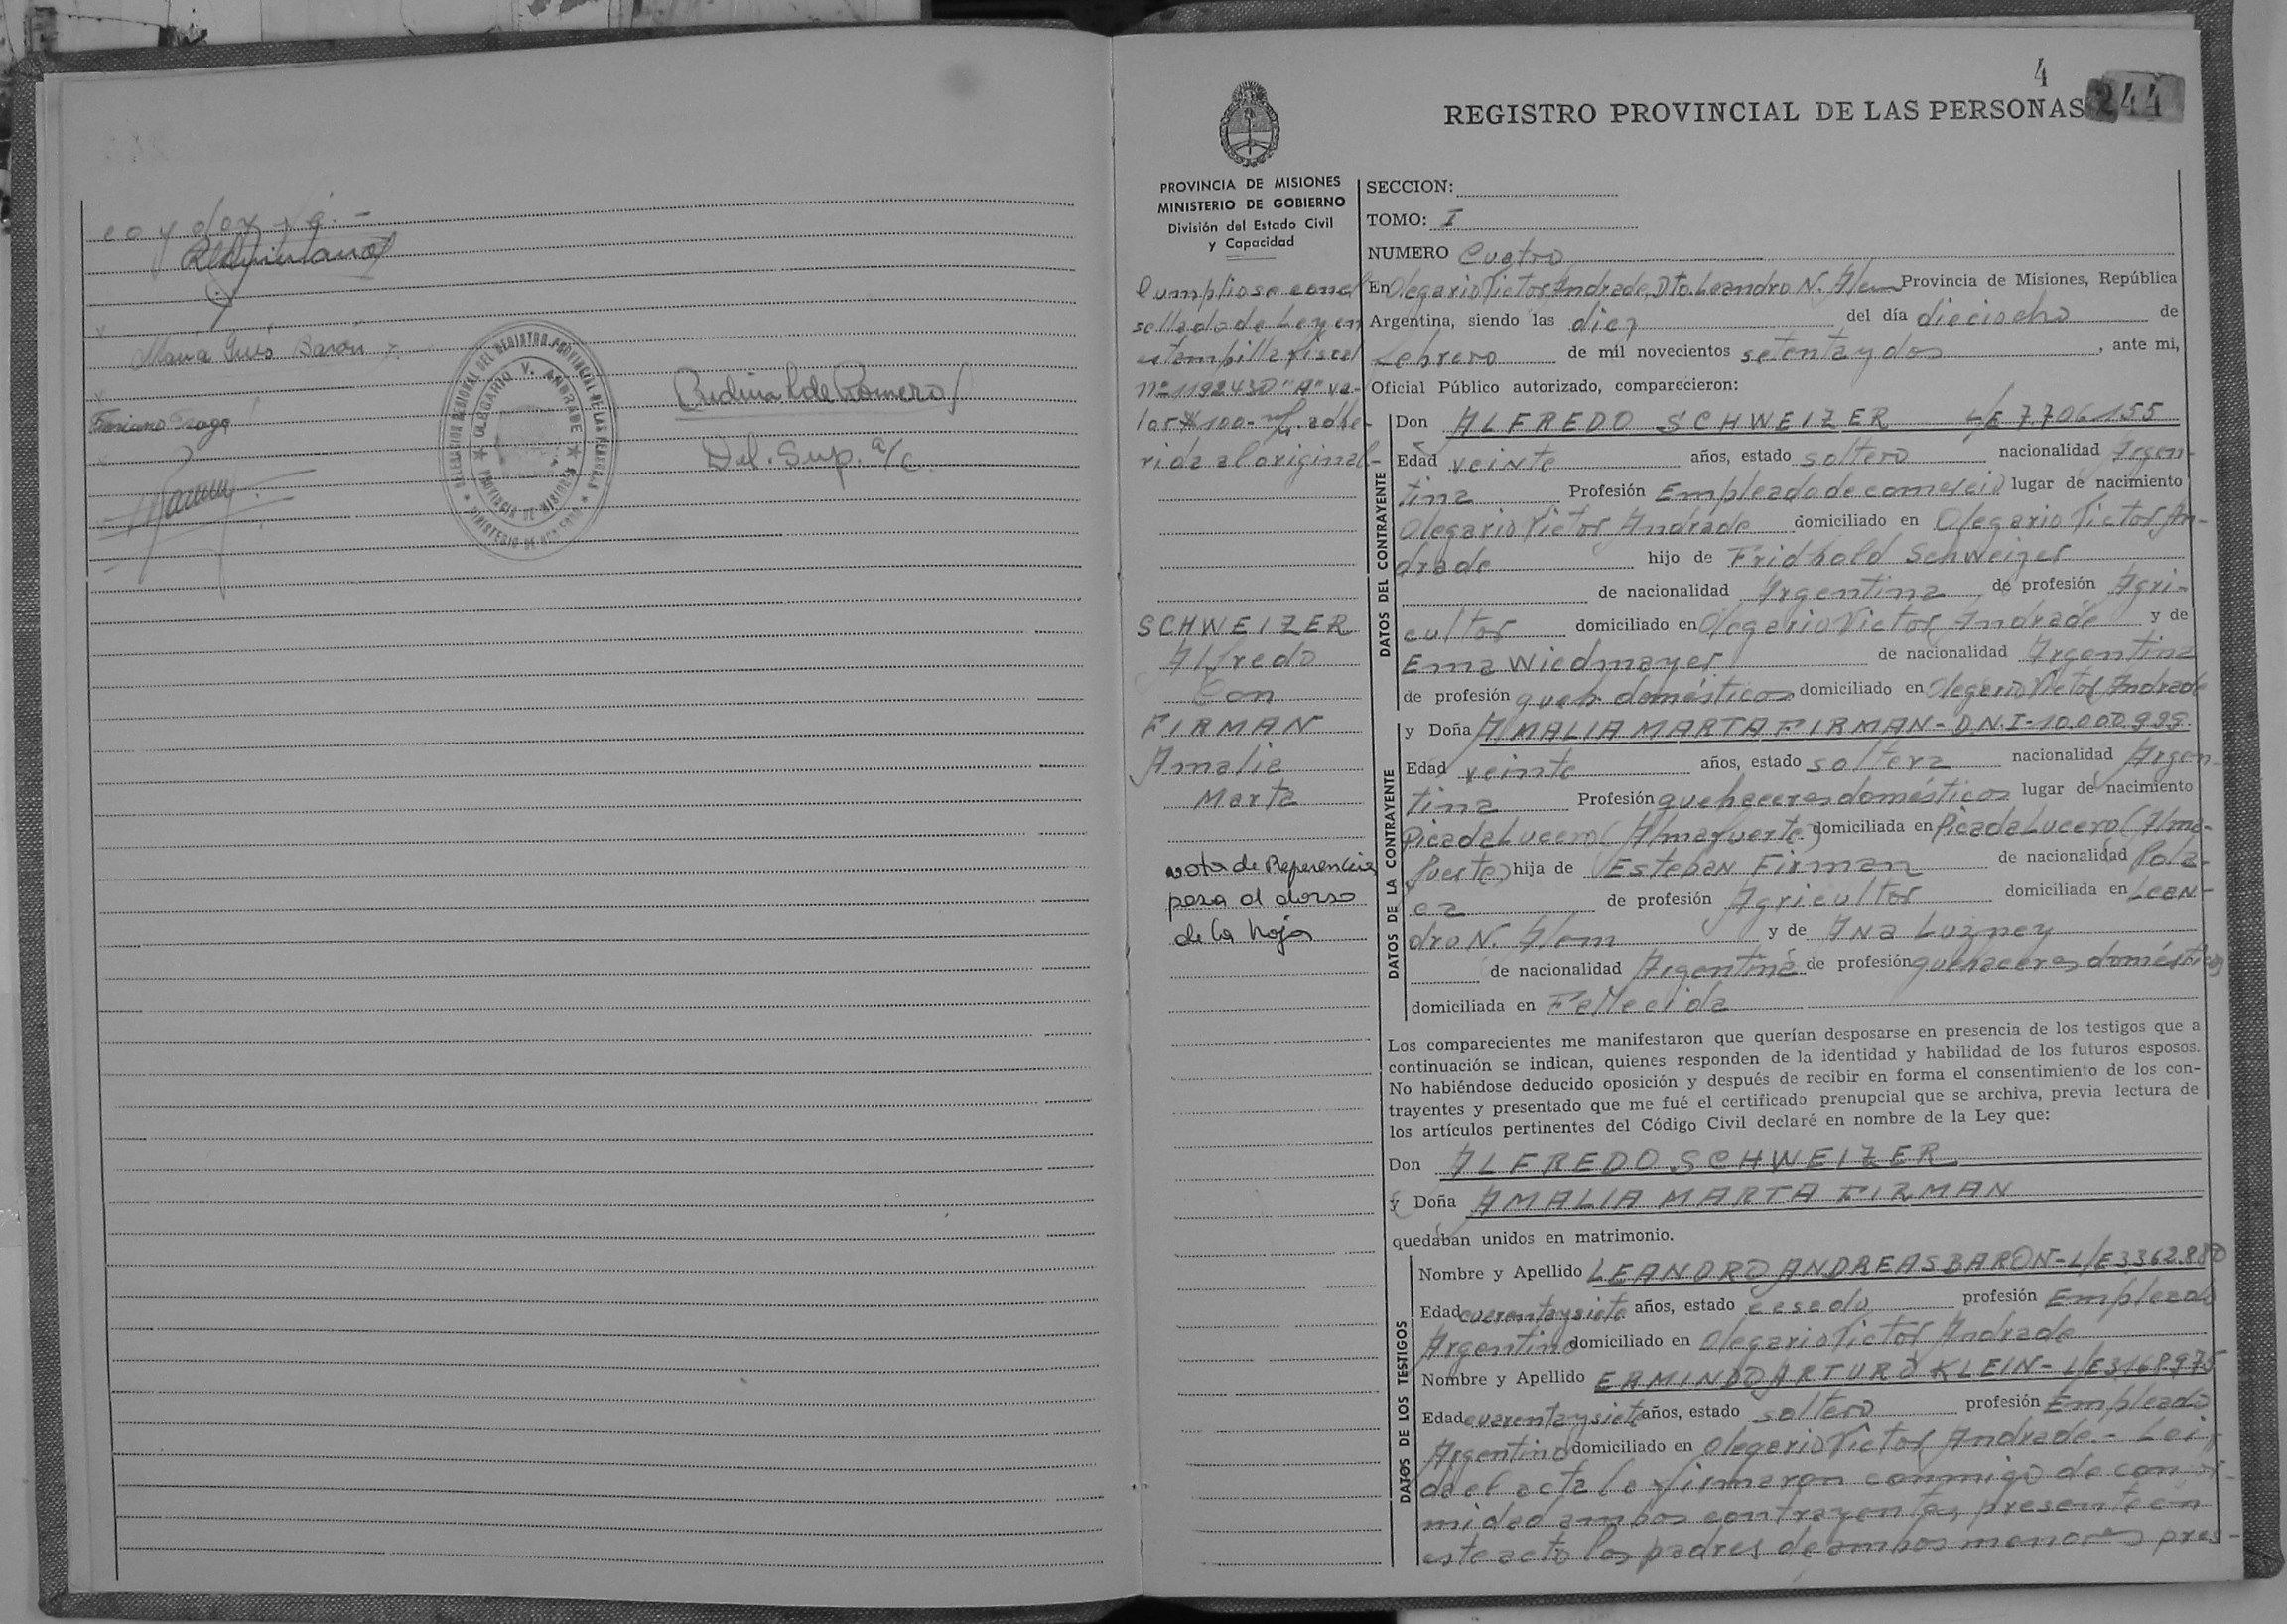 co y doy fé.-
María Inés Barón
DELEGACION REGIONAL DEL REGISTRO PROVINCIAL DE LAS PERSONAS
OLEGARIO V. ANDRADE
PROVINCIA DE MISIONES
MINISTERIO DE GOBIERNO
de Romero
Del. Sup. a/c.
4
244
REGISTRO PROVINCIAL DE LAS PERSONAS
PROVINCIA DE MISIONES
MINISTERIO DE GOBIERNO
División del Estado Civil
y Capacidad
Cumpliose con el
sellado de Ley en
estampilla fiscal
nº 1192430 "A" va-
lor $ 100- adhe-
rida al original-
SCHWEIZER
Alfredo
Con
FIRMAN
Amalia
Marta
nota de Referencia
pasa al dorso
de la hoja
SECCION:
TOMO: I
NUMERO Cuatro
En Olegario Victor Andrade, Dto. Leandro N. Alem Provincia de Misiones, República
Argentina, siendo las diez del día dieciocho de
febrero de mil novecientos setenta y dos, ante mi,
Oficial Público autorizado, comparecieron:
DATOS DEL CONTRAYENTE
Don ALFREDO SCHWEIZER L/E 7706155
Edad veinte años, estado soltero nacionalidad Argen-
tina Profesión Empleado de comercio lugar de nacimiento
Olegario Victor Andrade domiciliado en Olegario Victor An-
drade hijo de Fridhold Schweizer
de nacionalidad Argentina de profesión Agri-
cultor domiciliado en Olegario Victor Andrade y de
Ema Wiedmayer de nacionalidad Argentina
de profesión queh. domésticos domiciliado en Olegario Victor Andrade
DATOS DE LA CONTRAYENTE
y Doña AMALIA MARTA FIRMAN- D.N.I- 10.000.999.
Edad veinte años, estado soltera nacionalidad Argen-
tina Profesión quehaceres domésticos lugar de nacimiento
Picada Lucero (Almafuerte) domiciliada en Picada Lucero (Alma-
fuerte) hija de Esteban Firman de nacionalidad Pola-
ca de profesión Agricultor domiciliada en Lean-
dro N. Alem y de Ana Luzney
de nacionalidad Argentina de profesión quehaceres domésticos
domiciliada en Fallecida
Los comparecientes me manifestaron que querían desposarse en presencia de los testigos que a
continuación se indican, quienes responden de la identidad y habilidad de los futuros esposos.
No habiéndose deducido oposición y después de recibir en forma el consentimiento de los con-
trayentes y presentado que me fué el certificado prenupcial que se archiva, previa lectura de
los artículos pertinentes del Código Civil declaré en nombre de la Ley que:
Don ALFREDO SCHWEIZER
y Doña AMALIA MARTA FIRMAN
quedaban unidos en matrimonio.
DATOS DE LOS TESTIGOS
Nombre y Apellido LEANDRO ANDREAS BARON- L/E 3.362.880
Edad cuarenta y siete años, estado casado profesión Empleado
Argentino domiciliado en Olegario Victor Andrade
Nombre y Apellido ERMINDO ARTURO KLEIN- L/E 3168975
Edad cuarenta y siete años, estado soltero profesión Empleado
Argentino domiciliado en Olegario Victor Andrade.- Leí-
da el acta la firmaron conmigo de confor-
midad ambos contrayentes, presente en
este acto los padres de ambos menores pres-